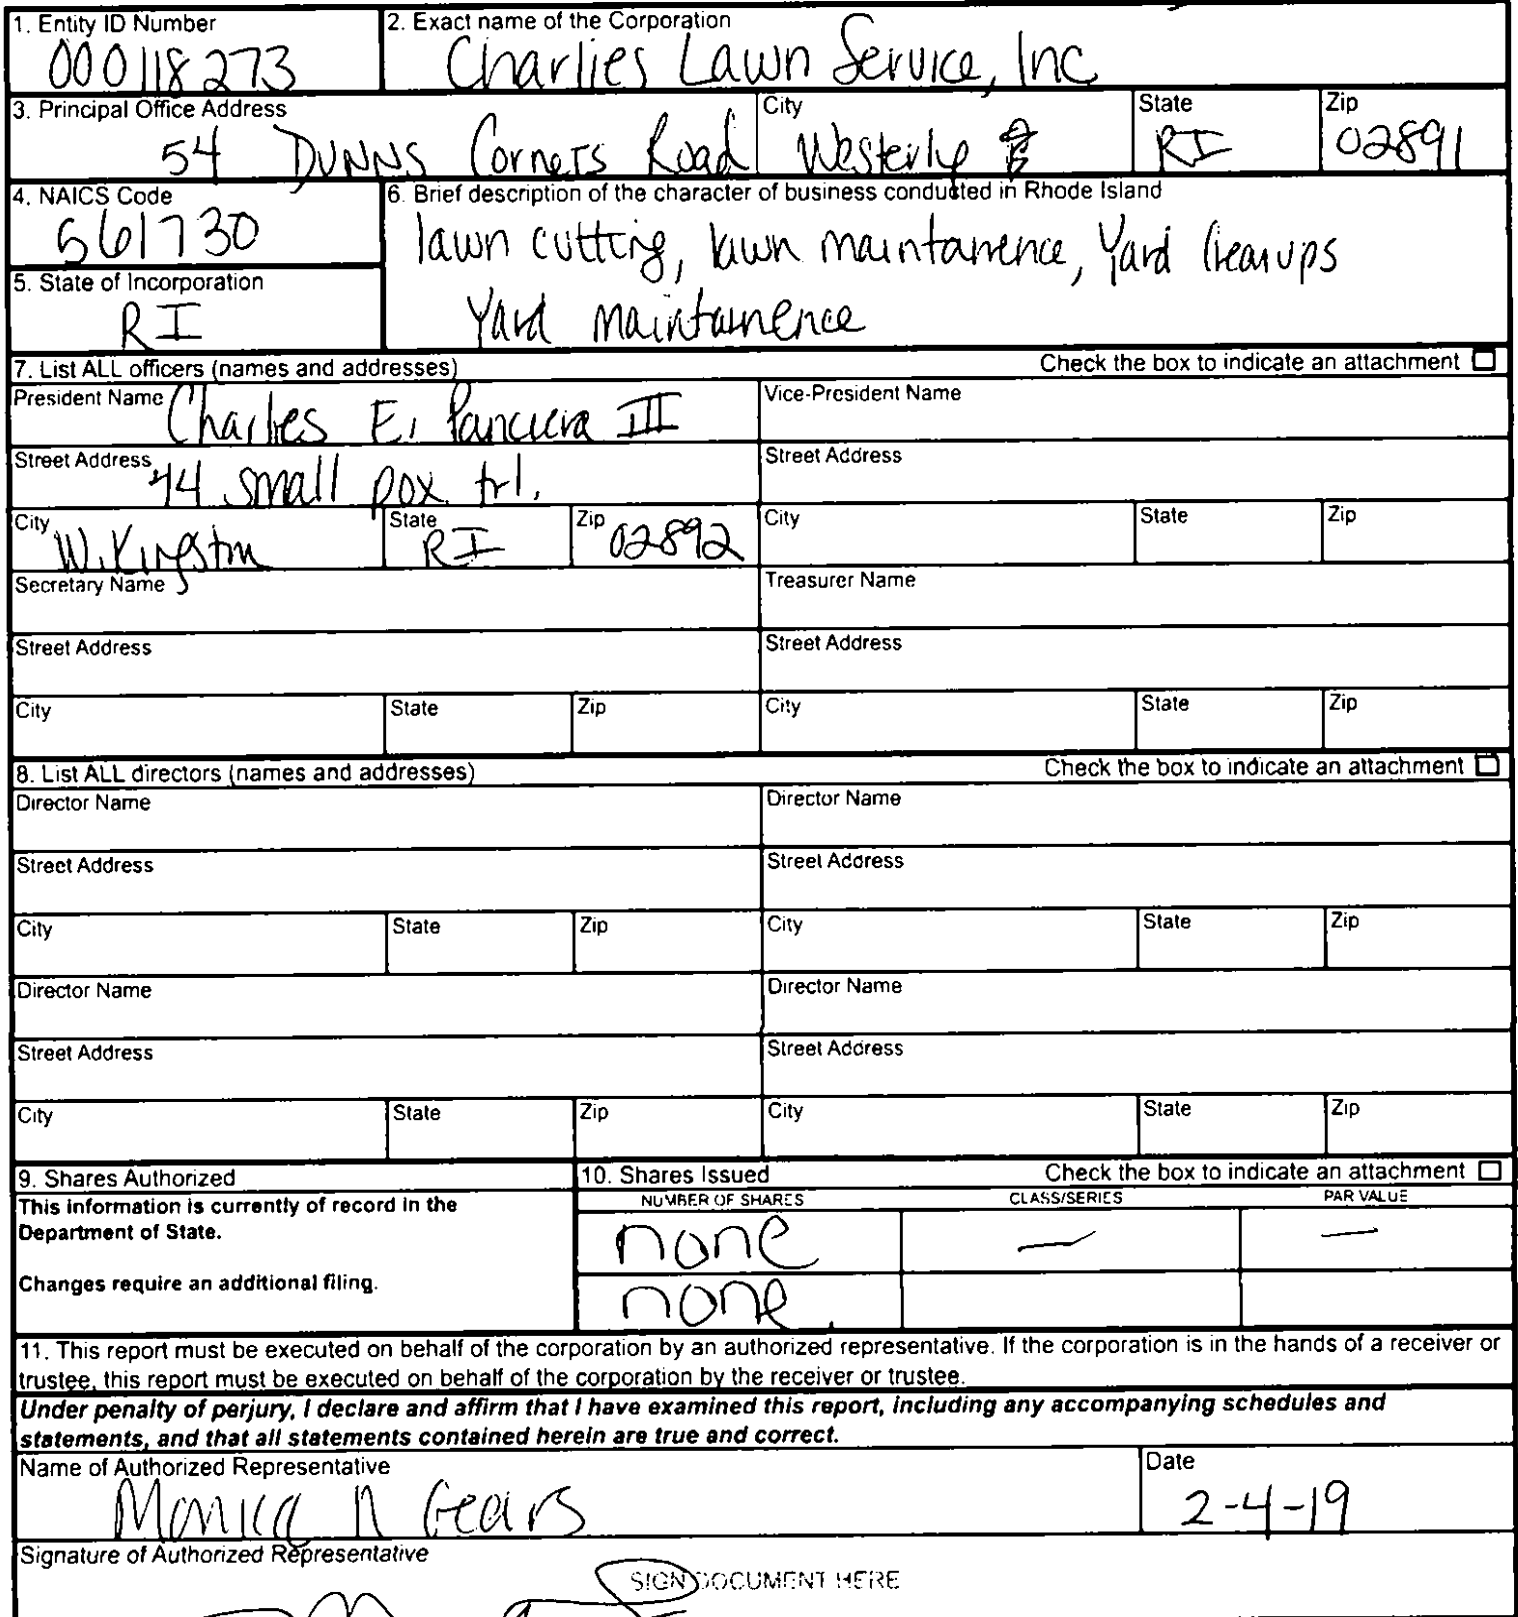 1. Entity ID Number
000118273
2. Exact name of the Corporation
Charlies Lawn Service, Inc
3. Principal Office Address
54 Dunns Corners Road
City
Westerly
State
RI
Zip
02891
4. NAICS Code
561730
5. State of Incorporation
RI
6. Brief description of the character of business conducted in Rhode Island
lawn cutting, lawn maintanence, Yard cleanups
Yard maintainence
7. List ALL officers (names and addresses)
Check the box to indicate an attachment
President Name
Charles E. Panciera III
Vice-President Name
Street Address
44 small pox trl.
Street Address
City
W. Kingston
State
RI
Zip
02892
City
State
Zip
Secretary Name
Treasurer Name
Street Address
Street Address
City
State
Zip
City
State
Zip
8. List ALL directors (names and addresses)
Check the box to indicate an attachment
Director Name
Director Name
Street Address
Street Address
City
State
Zip
City
State
Zip
Director Name
Director Name
Street Address
Street Address
City
State
Zip
City
State
Zip
9. Shares Authorized
This information is currently of record in the
Department of State.
Changes require an additional filing.
10. Shares Issued
Check the box to indicate an attachment
NUMBER OF SHARES
CLASS/SERIES
PAR VALUE
none
—
—
none
11. This report must be executed on behalf of the corporation by an authorized representative. If the corporation is in the hands of a receiver or
trustee, this report must be executed on behalf of the corporation by the receiver or trustee.
Under penalty of perjury, I declare and affirm that I have examined this report, including any accompanying schedules and
statements, and that all statements contained herein are true and correct.
Name of Authorized Representative
Monica N Gears
Date
2-4-19
Signature of Authorized Representative
SIGN DOCUMENT HERE